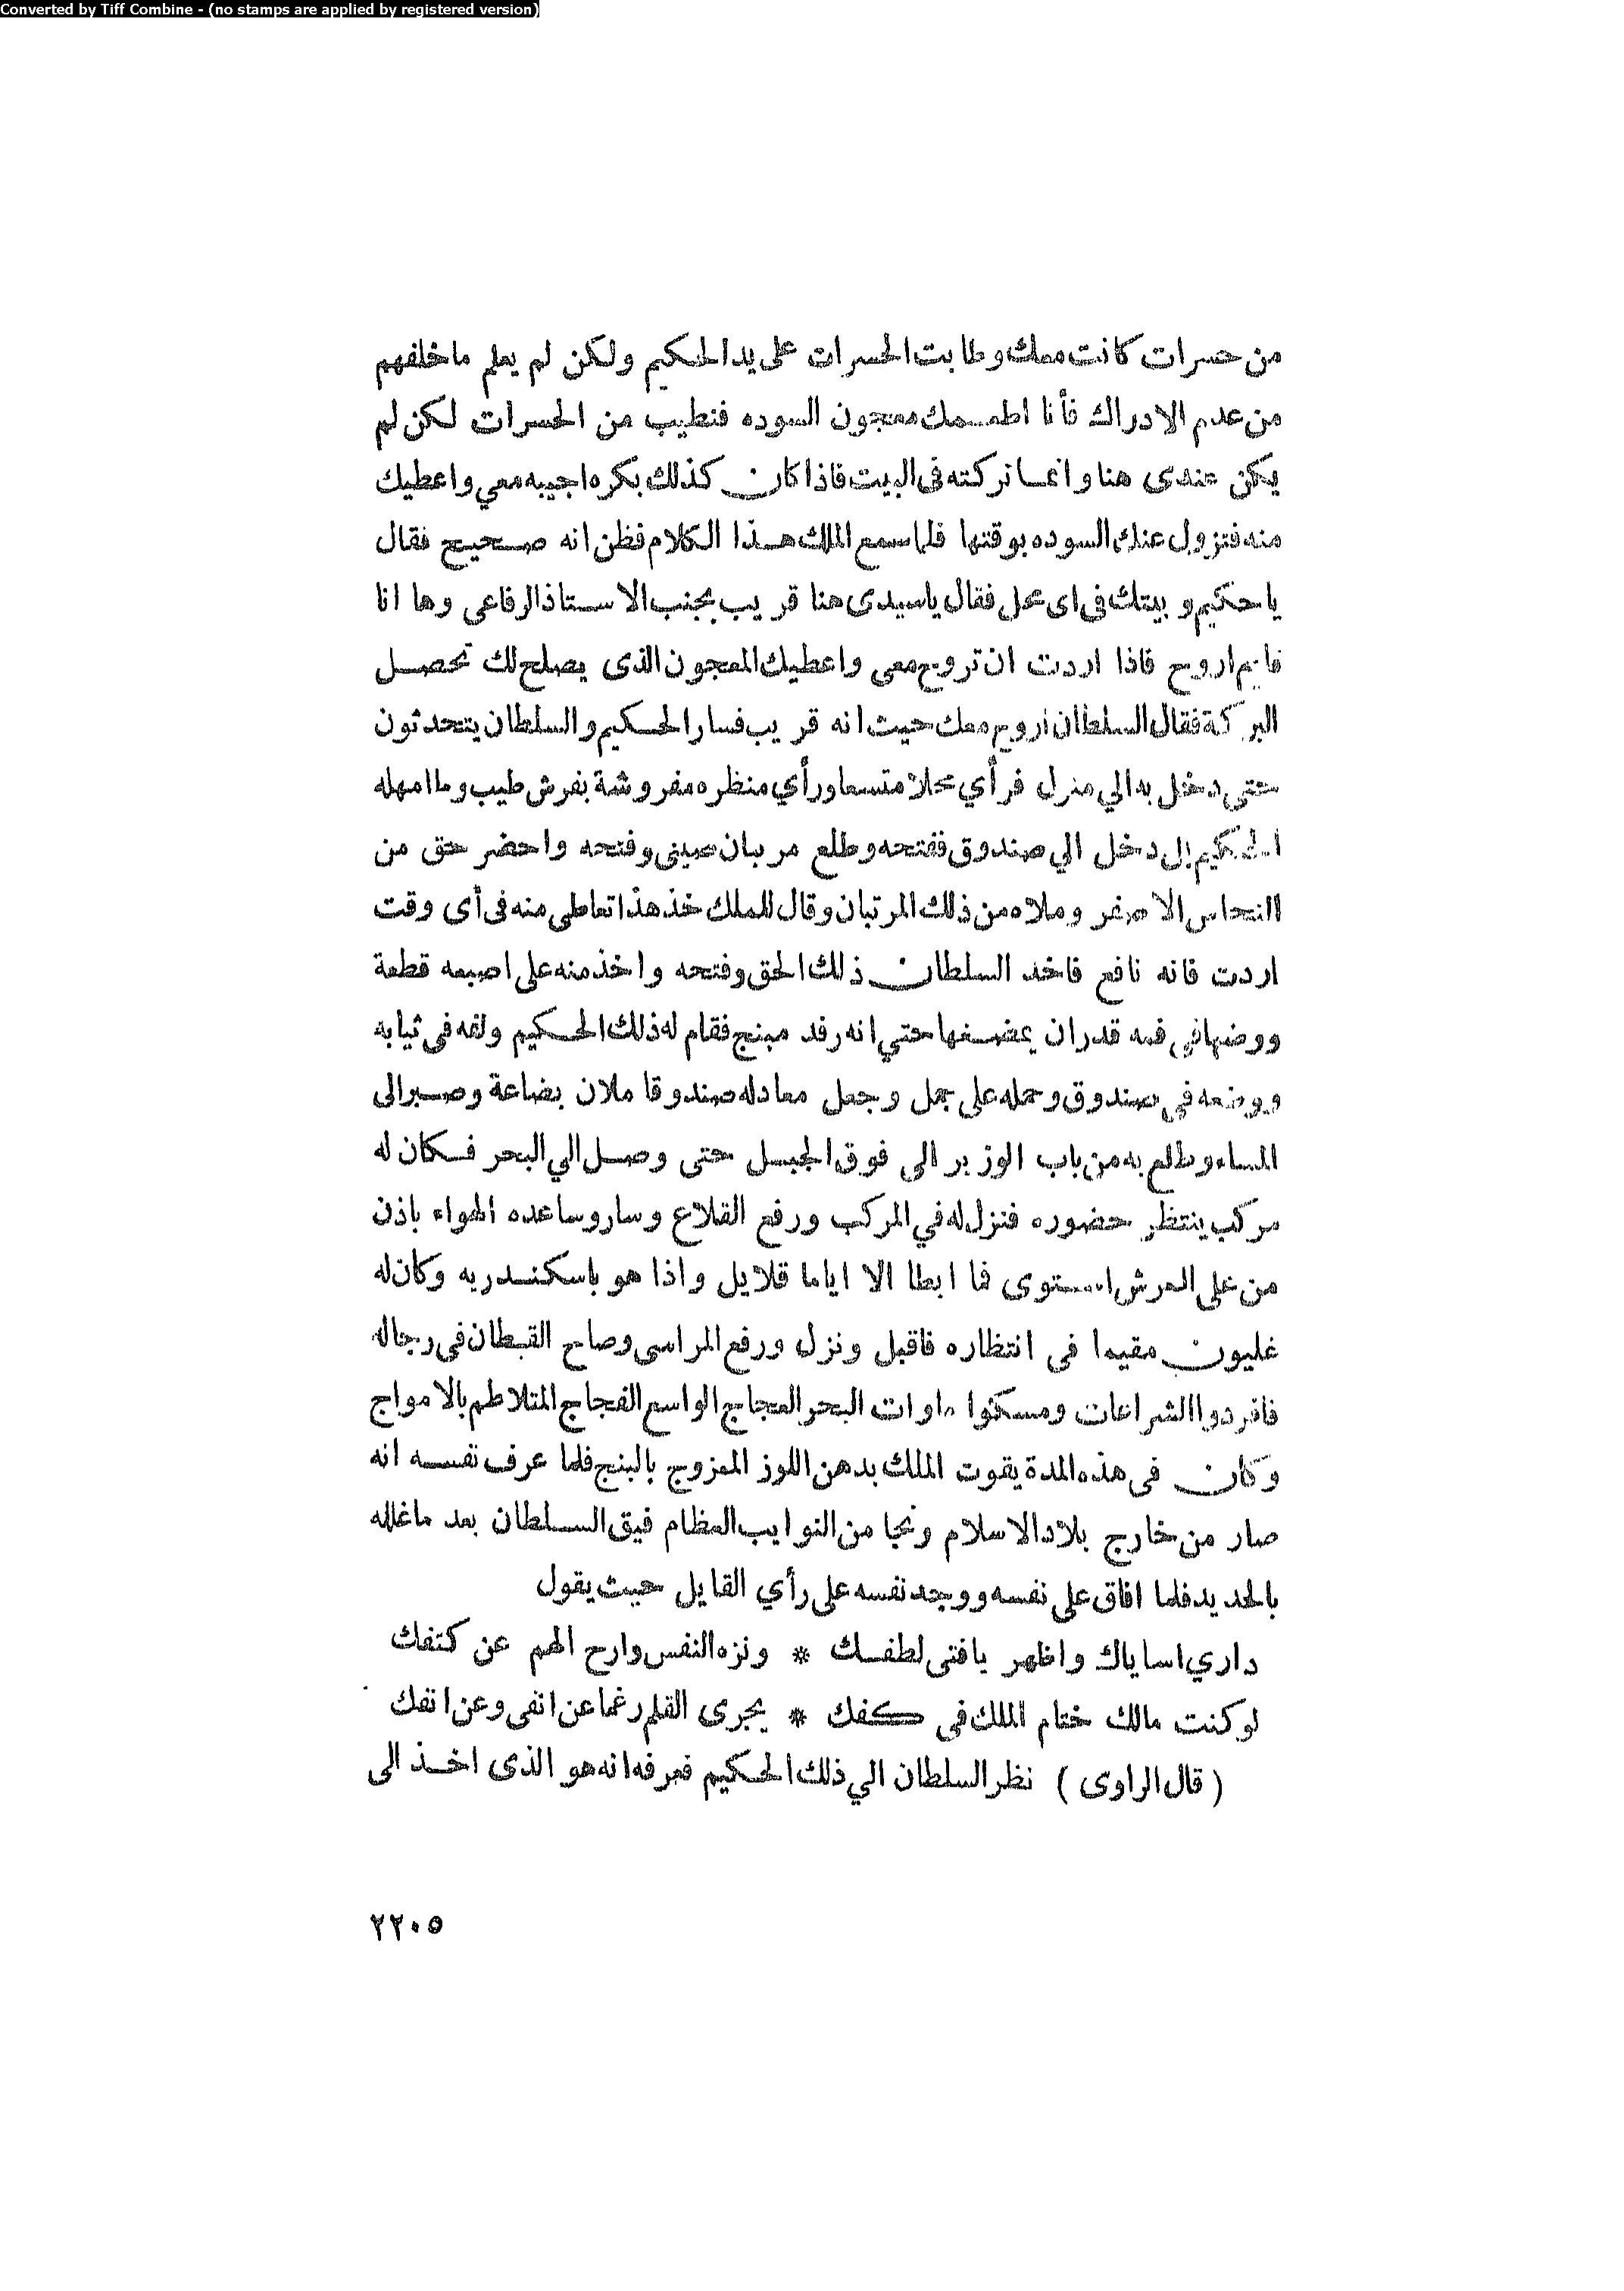 Converted by Tiff Combine - (no stamps are applied by registered version)
من حسرات كانت معك وطابت الحسرات على يد الحكيم ولكن لم يعلم ما خلفهم
من عدم الادراك فأنا اطعمك معجون السوده فتطيب من الحسرات لكن لم
يكن عندى هنا وانما تركته فى البيت فاذا كان كذلك بكره اجيبه معي واعطيك
منه فتزول عنك السوده بوقتها فلما سمع الملك هذا الكلام فظن انه صحيح فقال
يا حكيم وبيتك فى اى محل فقال ياسيدى هنا قريب بجنب الاستاذ الرفاعى وها انا
قايم اروح فاذا اردت ان تروح معى واعطيك المعجون الذى يصلح لك تحصل
البركة فقال السلطان اروح معك حيث انه قريب فسار الحكيم والسلطان يتحدثون
حتى دخل به الي منزل فرأي محلا متسعا ورأي منظره مفروشة بفرش طيب وما امهله
الحكيم بل دخل الي صندوق ففتحه وطلع مرببان صينى وفتحه واحضر حق من
النحاس الاصفر وملاه من ذلك المرتبان وقال للملك خذ هذا تعاطى منه فى أى وقت
اردت فانه نافع فاخد السلطان ذلك الحق وفتحه واخذ منه على اصبعه قطعة
ووضها في فمه قدر ان يمضغها حتي انه رفد مبنج فقام له ذلك الحكيم ولفه فى ثيابه
ووضعه في صندوق وحمله على جمل وجعل معادله صندوقا ملان بضاعة وصبر الى
المساء وطلع به من باب الوزير الى فوق الجبل حتى وصل الي البحر فكان له
مركب ينتظر حضوره فنزل له في المركب ورفع القلاع وسار وساعده الهواء باذن
من على العرش استوى فما ابطا الا اياما قلايل واذا هو باسكندريه وكان له
غليون مقيما فى انتظاره فاقبل ونزل ورفع المراسى وصاح القبطان فى رجاله
فافردوا الشراعات ومسكوا ماوات البحر العجاج الواسع الفجاج المتلاطم بالامواج
وكان فى هذه المدة يقوت الملك بدهن اللوز الممزوج بالبنج فلما عرف نفسه انه
صار من خارج بلاد الاسلام ونجا من النوايب العظام فيق السلطان بعد ما غلله
بالحديد فلما افاق على نفسه ووجد نفسه على رأي القايل حيث يقول
داري اساياك واظهر يافتى لطفك * ونزه النفس وارح الهم عن كتفك
لوكنت مالك ختام الملك فى كفك * يجرى القلم رغما عن انفى وعن انفك
(قال الراوى) نظر السلطان الي ذلك الحكيم فعرفه انه هو الذى اخذ الى
٢٢٠٥